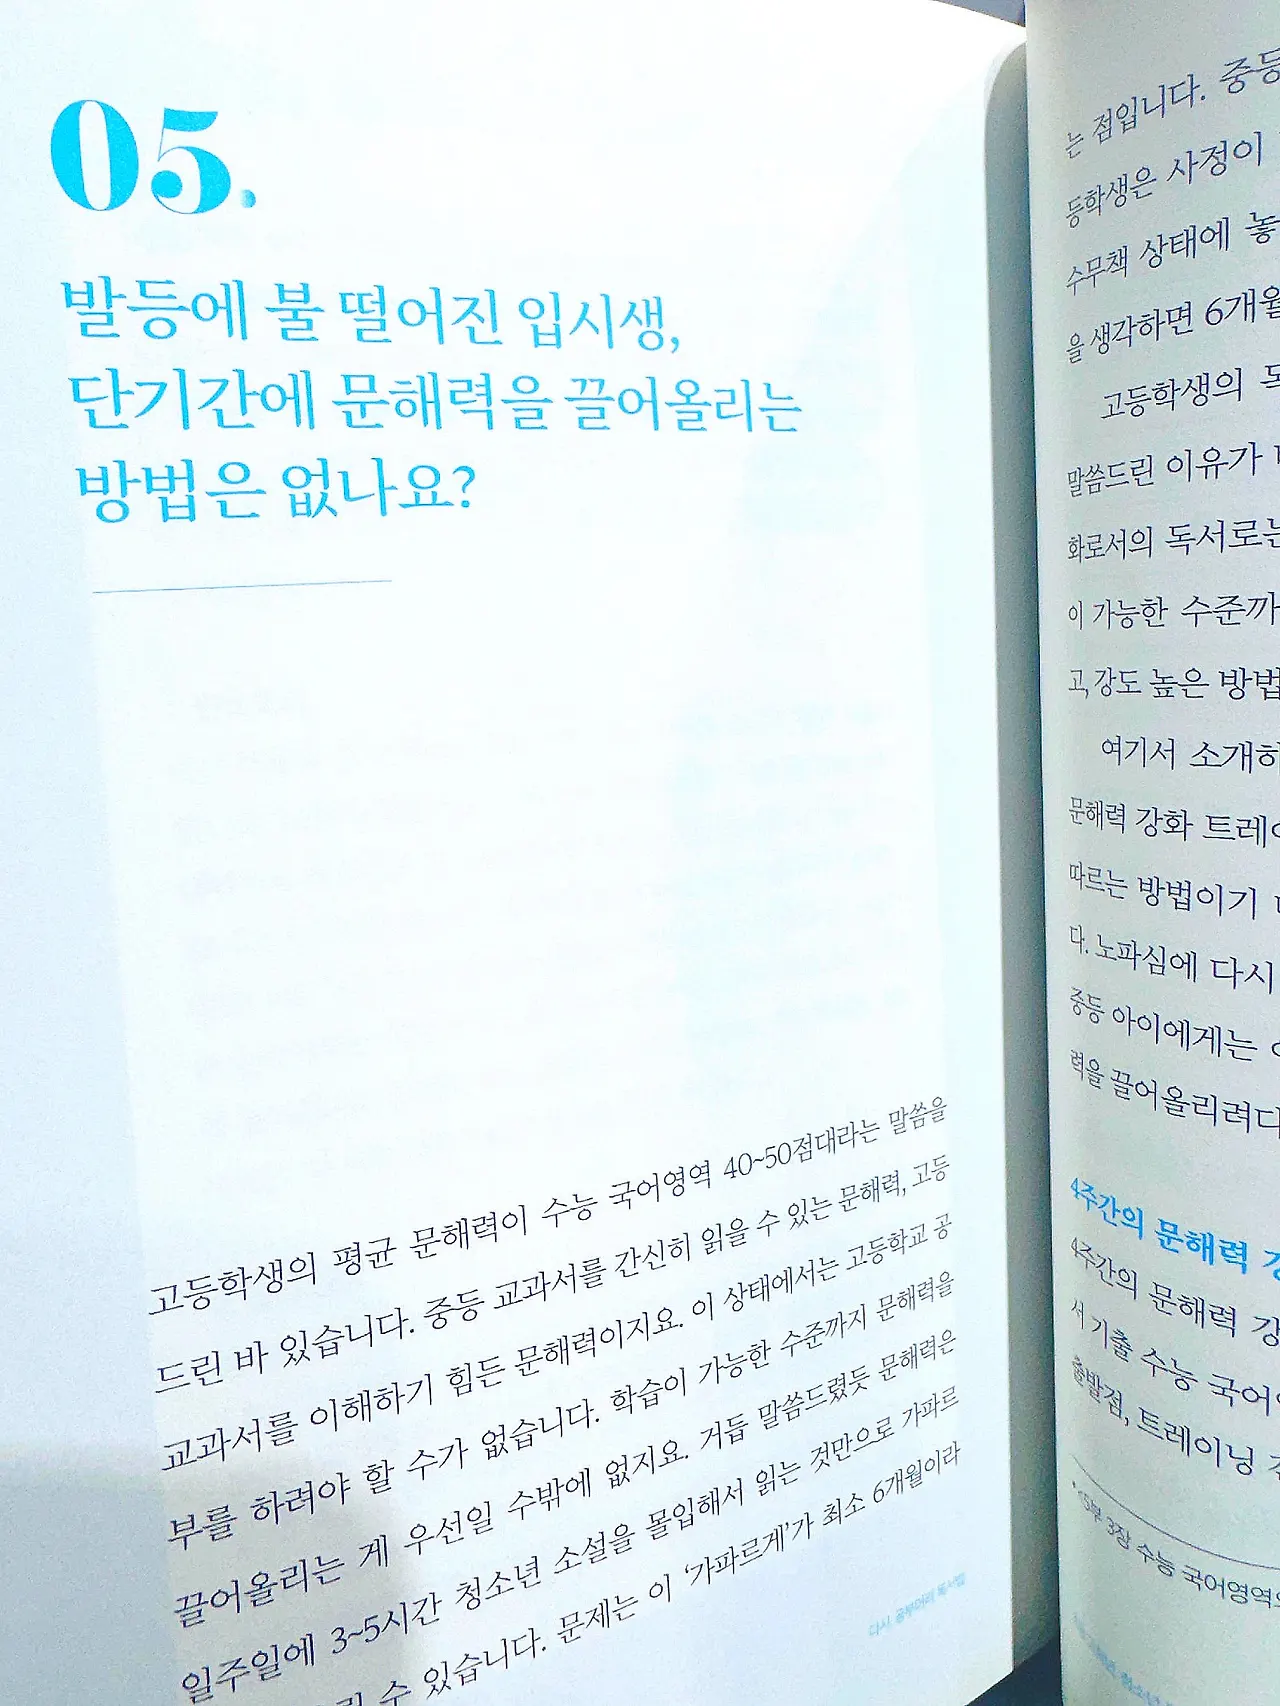 05.
발등에 불 떨어진 입시생,
단기간에 문해력을 끌어올리는
방법은 없나요?
고등학생의 평균 문해력이 수능 국어영역 40~50점대라는 말씀을
드린 바 있습니다. 중등 교과서를 간신히 읽을 수 있는 문해력, 고등
교과서를 이해하기 힘든 문해력이지요. 이 상태에서는 고등학교 공
부를 하려야 할 수가 없습니다. 학습이 가능한 수준까지 문해력을
끌어올리는 게 우선일 수밖에 없지요. 거듭 말씀드렸듯 문해력은
일주일에 3~5시간 청소년 소설을 몰입해서 읽는 것만으로 가파르
수 있습니다. 문제는 이 '가파르게'가 최소 6개월이라
다시, 공부머리 독서법
는 점입니다. 중등
등학생은 사정이
수무책 상태에 놓
을 생각하면 6개월
고등학생의 독
말씀드린 이유가
화로서의 독서로는
이 가능한 수준까
고, 강도 높은 방법
여기서 소개하
문해력 강화 트레이
따르는 방법이기
다. 노파심에 다시
중등 아이에게는
력을 끌어올리려다
4주간의 문해력 강
4주간의 문해력 강
서 기출 수능 국어영
출발점, 트레이닝
* 5부 3장 수능 국어영역